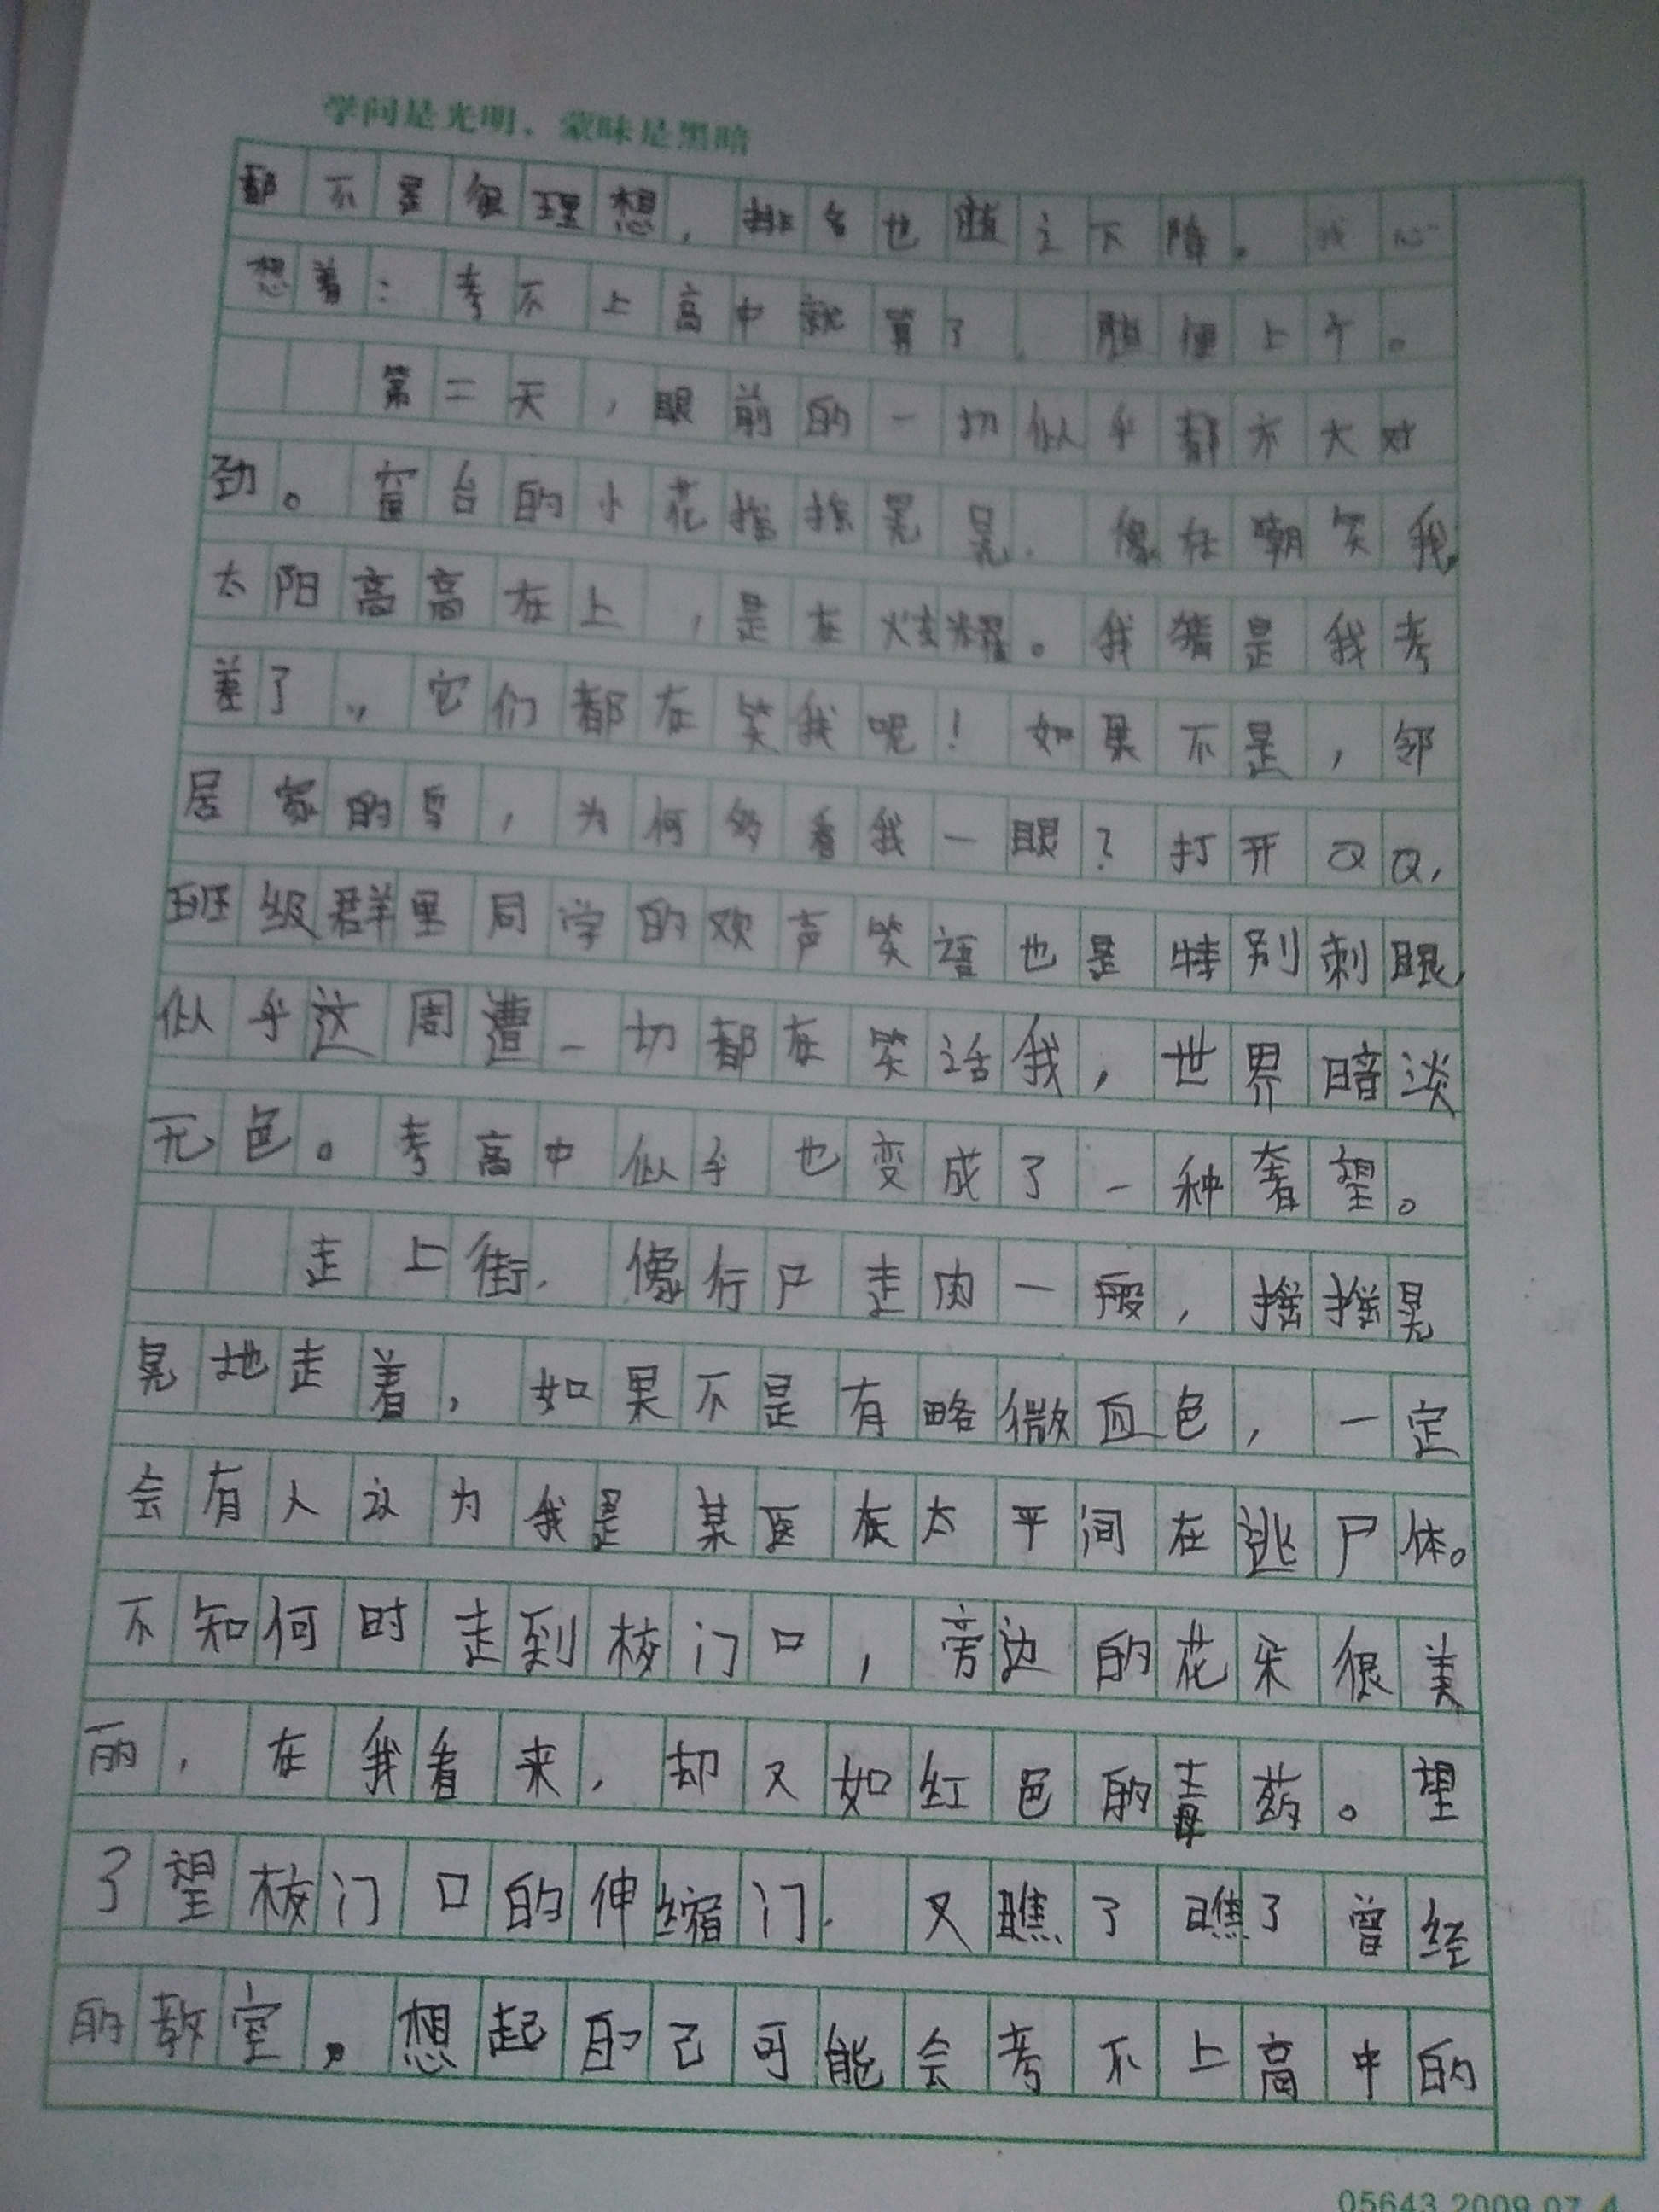 学问是光明，蒙昧是黑暗
都不是很理想，排名也随之下降。我心
想着：考不上高中就算了，随便上个。
第二天，眼前的一切似乎都不大对
劲。窗台的小花摇摇晃晃，像在嘲笑我，
太阳高高在上，是在炫耀。我猜是我考
差了，它们都在笑我呢！如果不是，邻
居家的鸟，为何多看我一眼？打开QQ，
班级群里同学的欢声笑语也是特别刺眼，
似乎这周遭一切都在笑话我，世界暗淡
无色。考高中似乎也变成了一种奢望。
走上街，像行尸走肉一般，摇摇晃
晃地走着，如果不是有略微血色，一定
会有人认为我是某医院太平间在逃尸体。
不知何时走到校门口，旁边的花朵很美
丽，在我看来，却又如红色的毒药。望
了望校门口的伸缩门，又瞧了瞧了曾经
的教室。想起自己可能会考不上高中的
05643.2009.07.4